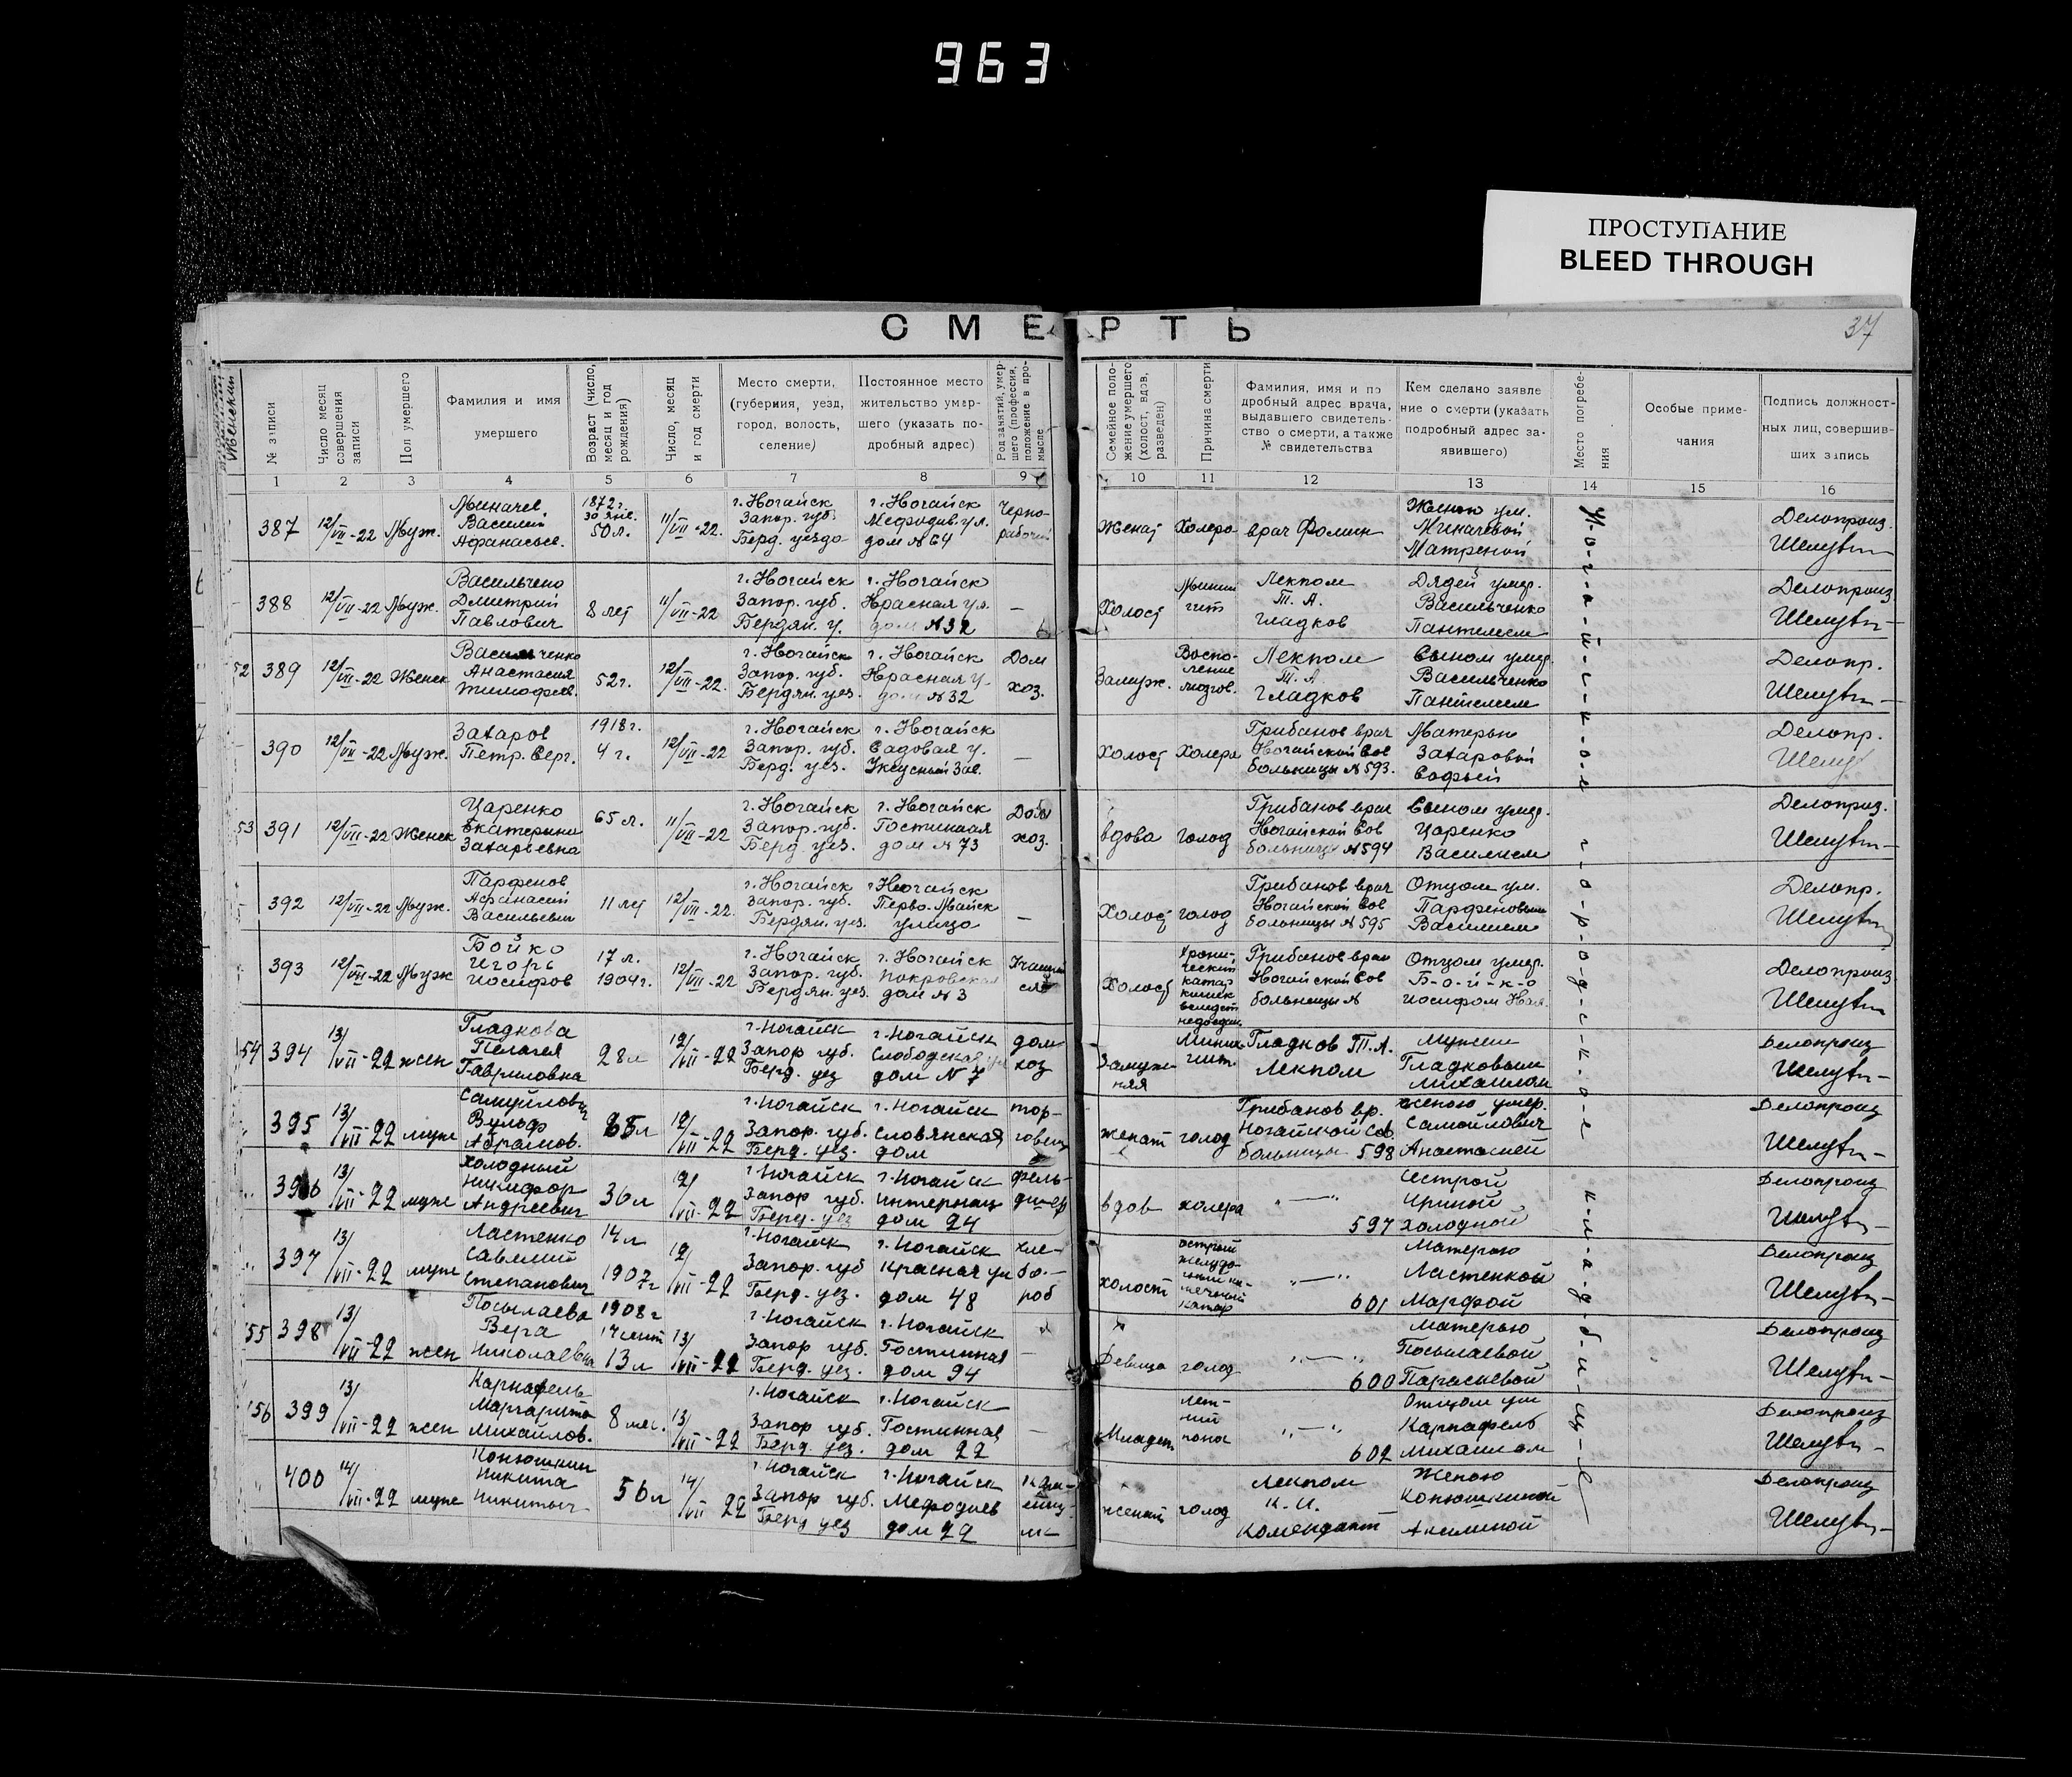 963
ПРОСТУПАНИЕ
BLEED THROUGH
СМЕРТЬ
37
№ записи
Число месяц совершения записи
Пол умершего
Фамилия и имя умершего
Возраст (число, месяц и год рождения)
Число, месяц и год смерти
Место смерти, (губерния, уезд, город, волость, селение)
Постоянное место жительство умершего (указать подробный адрес)
Род занятий, умершего (профессия, положение в промысле
Семейное положение умершего (холост, вдов, разведен)
Причина смерти
Фамилия, имя и подробный адрес врача, выдавшего свидетельство о смерти, а также № свидетельства
Кем сделано заявление о смерти (указать подробный адрес заявившего)
Место погребения
Особые примечания
Подпись должностных лиц, совершивших запись
1 2 3 4 5 6 7 8 9 10 11 12 13 14 15 16
387 12/VII-22 Муж. Миначев Василий Афанасьев. 1872 г. 50 л. 11/VII-22. г. Ногайск Запор. губ. Берд. уезда г. Ногайск Мефодив. ул. дом № 64 Чернорабочий Женат Холера врач Фомин Женою ум. Миначевой Матреной Делопроиз.
388 12/VII-22 Муж. Васильченко Дмитрий Павлович 8 лет 11/VII-22 г. Ногайск Запор. губ. Бердян. у. г. Ногайск Красная ул. дом № 32 — Холост Менингит Лекпом Т. А. Гладков Дядей умер. Васильченко Пантелеем Делопроиз.
52 389 12/VII-22 Женск Васильченко Анастасия Тимофеев. 52 г. 12/VII-22. г. Ногайск Запор. губ. Бердян. уез. г. Ногайск Красная у. дом № 32 Дом хоз. Замуж. Восполение мозгов. Лекпом Т. А. Гладков Сыном умер. Васильченко Пантелеем Делопр.
390 12/VII-22 Муж. Захаров Петр. Серг. 1918 г. 4 г. 12/VII-22 г. Ногайск Запор. губ. Берд. уез. г. Ногайск Садовая у. Уксусный Зав. — Холост Холера Грибанов врач Ногайской Сов больницы № 593. Матерью Захаровой Софьей Делопр.
53 391 12/VII-22 Женск Царенко Екатерина Захарьевна 65 л. 11/VII-22 г. Ногайск Запор. губ. Берд. уез. г. Ногайск Гостинная дом № 73 Дом хоз. вдова голод Грибанов врач Ногайской Сов больницы № 594 Сыном умер. Царенко Василием Делопроиз.
392 12/VII-22 Муж. Парфенов Афанасий Васильевич 11 лет 12/VII-22. г. Ногайск Запор. губ. Бердян. уез. г. Ногайск Перво-Майск улица — Холост голод Грибанов врач Ногайской Сов больницы № 595 Отцом ум. Парфеновым Василием Делопр.
393 12/VII-22 Муж Бойко Игорь Иосифов 17 л. 1904 г. 12/VII-22 г. Ногайск Запор. губ. Бердян. уез. г. Ногайск Покровская дом № 3 Холост Хронический катар кишек Грибанов врач Ногайской Сов больницы № Отцом умер. Б-о-й-к-о Иосифом Делопроиз.
54 394 13/VII-22 жен Гладкова Пелагея Гавриловна 28 л 12/VII-22 г. Ногайск Запор губ. Берд. уез г. Ногайск Слободская ул дом № 7 дом хоз Замужняя Менингит. Гладков Т. А. Лекпом Мужем Гладковым Михаилом Делопроиз
395 13/VII-22 муж Самуйлович Вульф Абрамов. 65 л 12/VII-22 г. Ногайск Запор. губ. Берд. уез. г. Ногайск Словянская дом торговец женат голод Грибанов вр. Ногайской Сов. больницы 598 женою умер. Самойлович Анастасией Делопроиз
396 13/VII-22 муж Холодный Никифор Андреевич 36 л 12/VII-22 г. Ногайск Запор губ. Берд. уез г. Ногайск интернац дом 24 фельдшер вдов холера „—“ 597 Сестрой Ириной Холодной Делопроиз
397 13/VII-22 муж Ластенко Савелий Степанович 14 л 1907 г 12/VII-22 г. Ногайск Запор. губ Берд. уез. г. Ногайск Красная ул дом 48 хлебороб холост острый желудочный катар „—“ 601 Матерью Ластенкой Марфой Делопроиз
55 398 13/VII-22 жен Посылаева Вера Николаевна 1908 г 13 л 13/VII-22 г. Ногайск Запор губ. Берд. уез. г. Ногайск Гостинная дом 94 — Девица голод „—“ 600 Матерью Посылаевой Парасковой Делопроиз
156 399 13/VII-22 жен Карнафель Маргарита Михайлов. 8 мес. 13/VII-22 г. Ногайск Запор губ. Берд. уез. г. Ногайск Гостинная дом 22 — Младен летний понос „—“ 602 Отцом ум Карнафель Михаилом Делопроиз
400 14/VII-22 муж Конюшкин Никита Никитыч 56 л 14/VII-22 г. Ногайск Запор губ. Берд уез г. Ногайск Мефодиев дом 22 женат голод Лекпом К. И. Комендант Женою Конюшкиной Акилиной Делопроиз
Н-о-г-а-й-с-к-о-е г-о-р-о-д-с-к-о-е к-л-а-д-б-и-щ-е